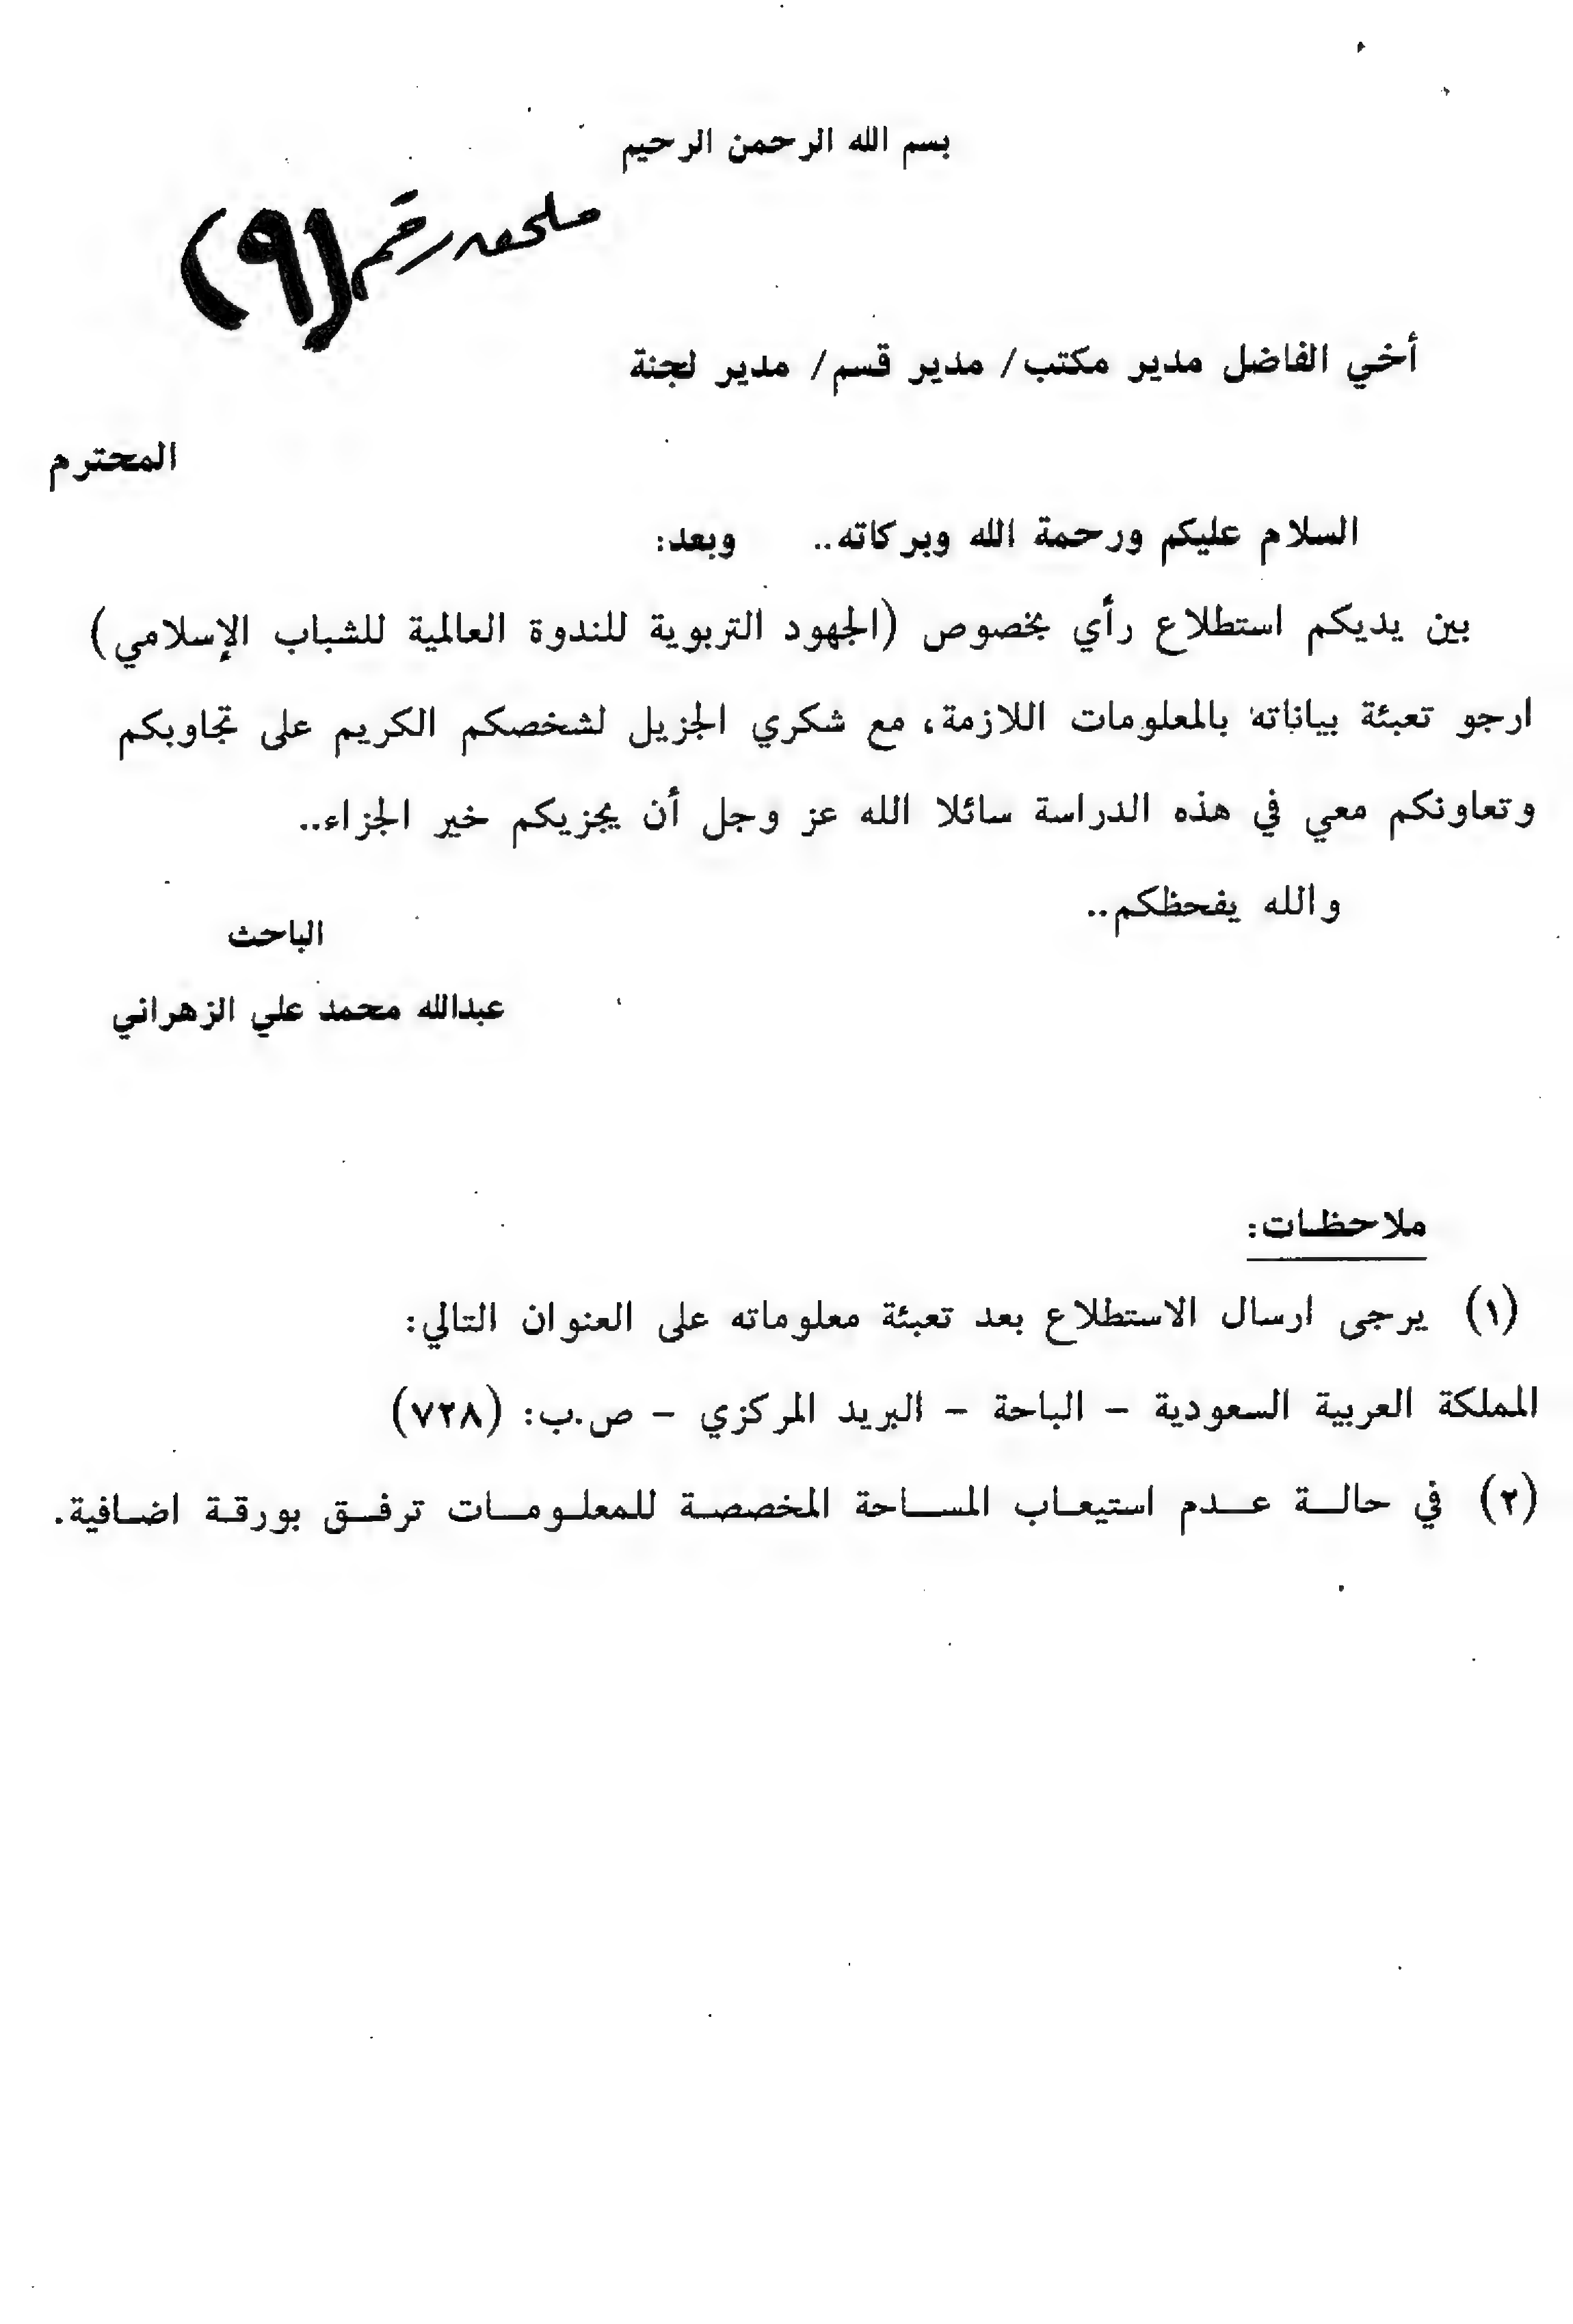 بسم الله الرحمن الرحيم
ملحق رقم (٩)
أخي الفاضل مدير مكتب/ مدير قسم/ مدير لجنة
المحترم
السلام عليكم ورحمة الله وبركاته.. وبعد:
بين يديكم استطلاع رأي بخصوص (الجهود التربوية للندوة العالمية للشباب الإسلامي)
ارجو تعبئة بياناته بالمعلومات اللازمة، مع شكري الجزيل لشخصكم الكريم على تجاوبكم
وتعاونكم معي في هذه الدراسة سائلا الله عز وجل أن يجزيكم خير الجزاء..
والله يفحظكم..
الباحث
عبدالله محمد علي الزهراني
ملاحظات:
(١) يرجى ارسال الاستطلاع بعد تعبئة معلوماته على العنوان التالي:
المملكة العربية السعودية - الباحة - البريد المركزي - ص.ب: (٧٢٨)
(٢) في حالة عدم استيعاب المساحة المخصصة للمعلومات ترفق بورقة اضافية.